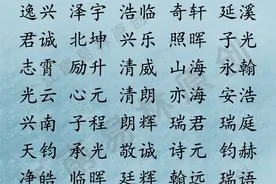 逸兴 泽宇 浩临 奇轩 延溪
君诚 北坤 兴乐 照晖 子光
志霄 励升 清威 山海 永翰
光云 心元 清朗 亦海 安浩
兴南 子程 朗辉 瑞君 瑞庭
天钧 承光 敬诚 诗元 钧赫
净皓 临晖 廷辉 翰远 瑞语